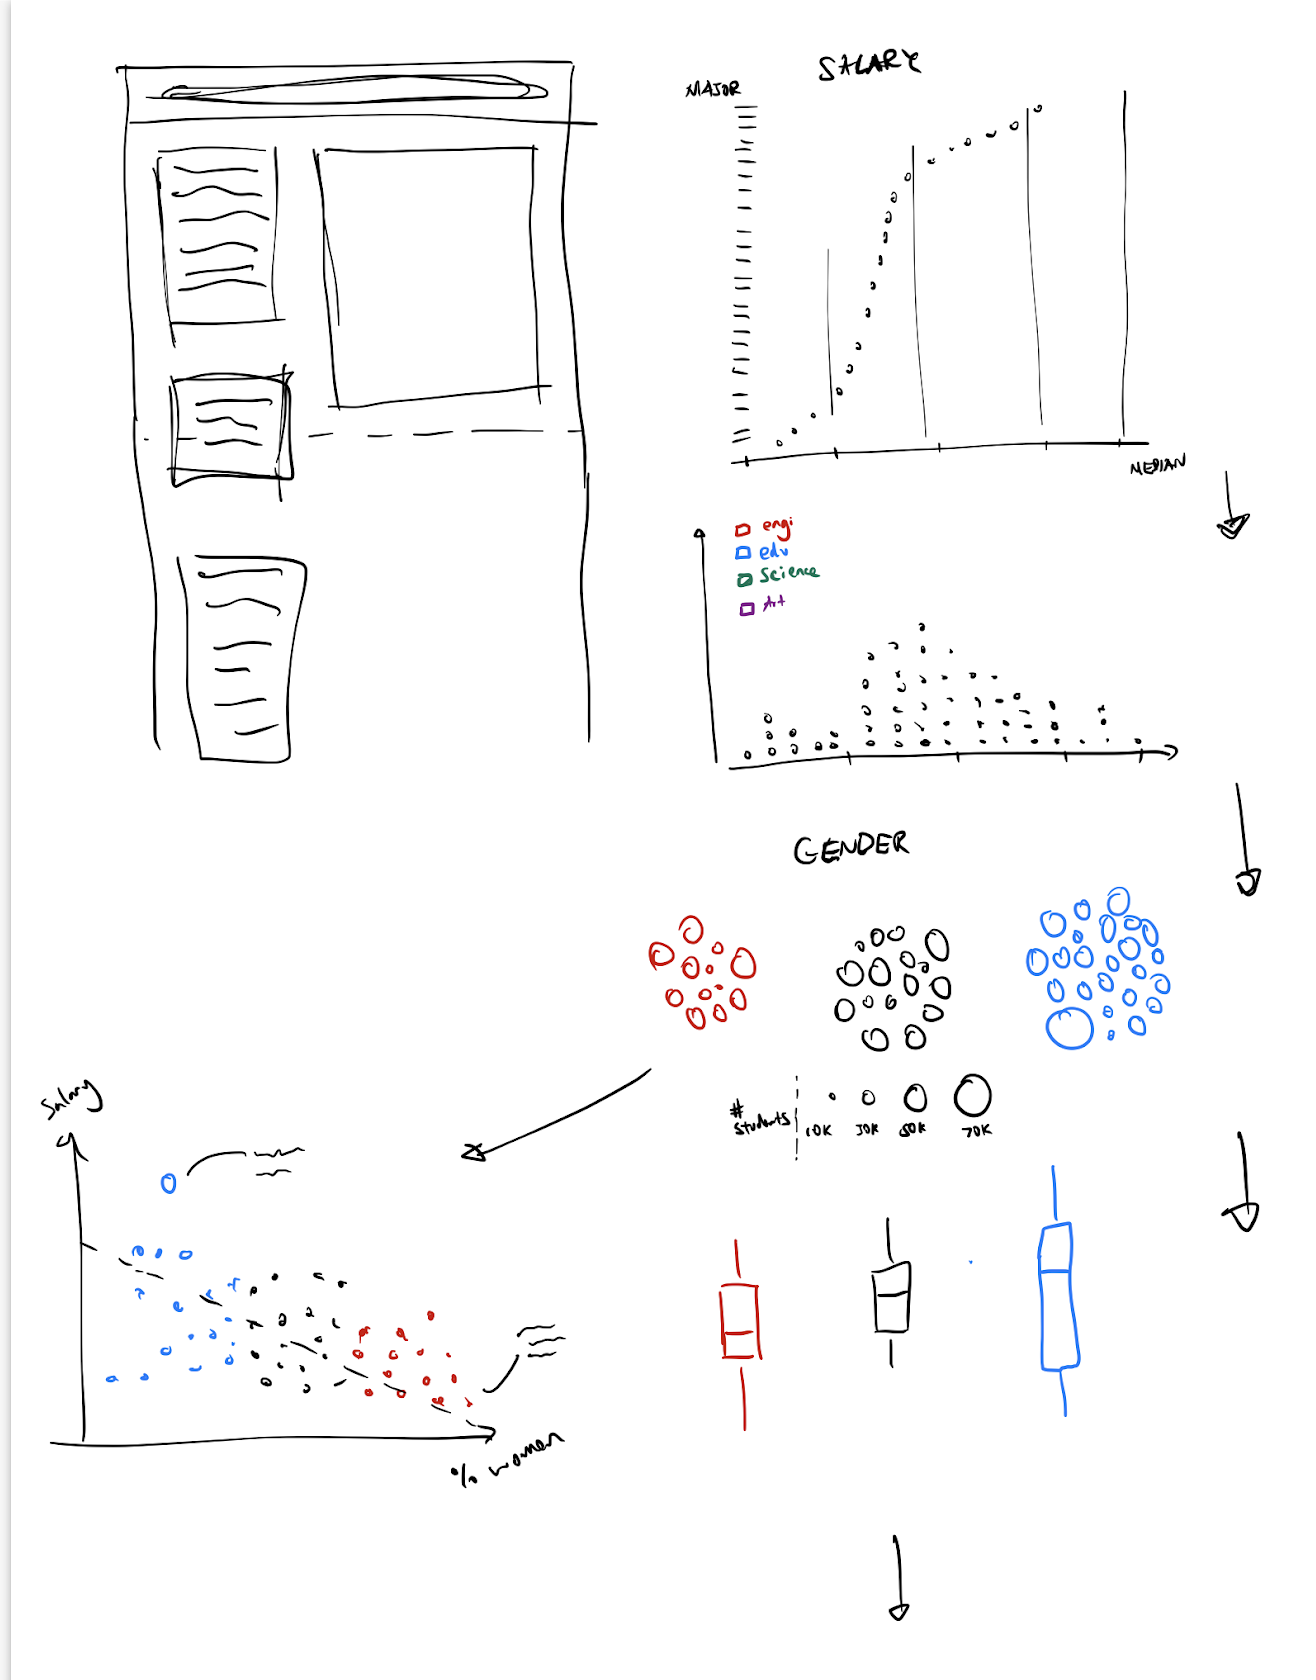 SALARY
MAJOR
MEDIAN
engi
edu
Science
Art
GENDER
# students
10K 30K 50K 70K
Salary
% women